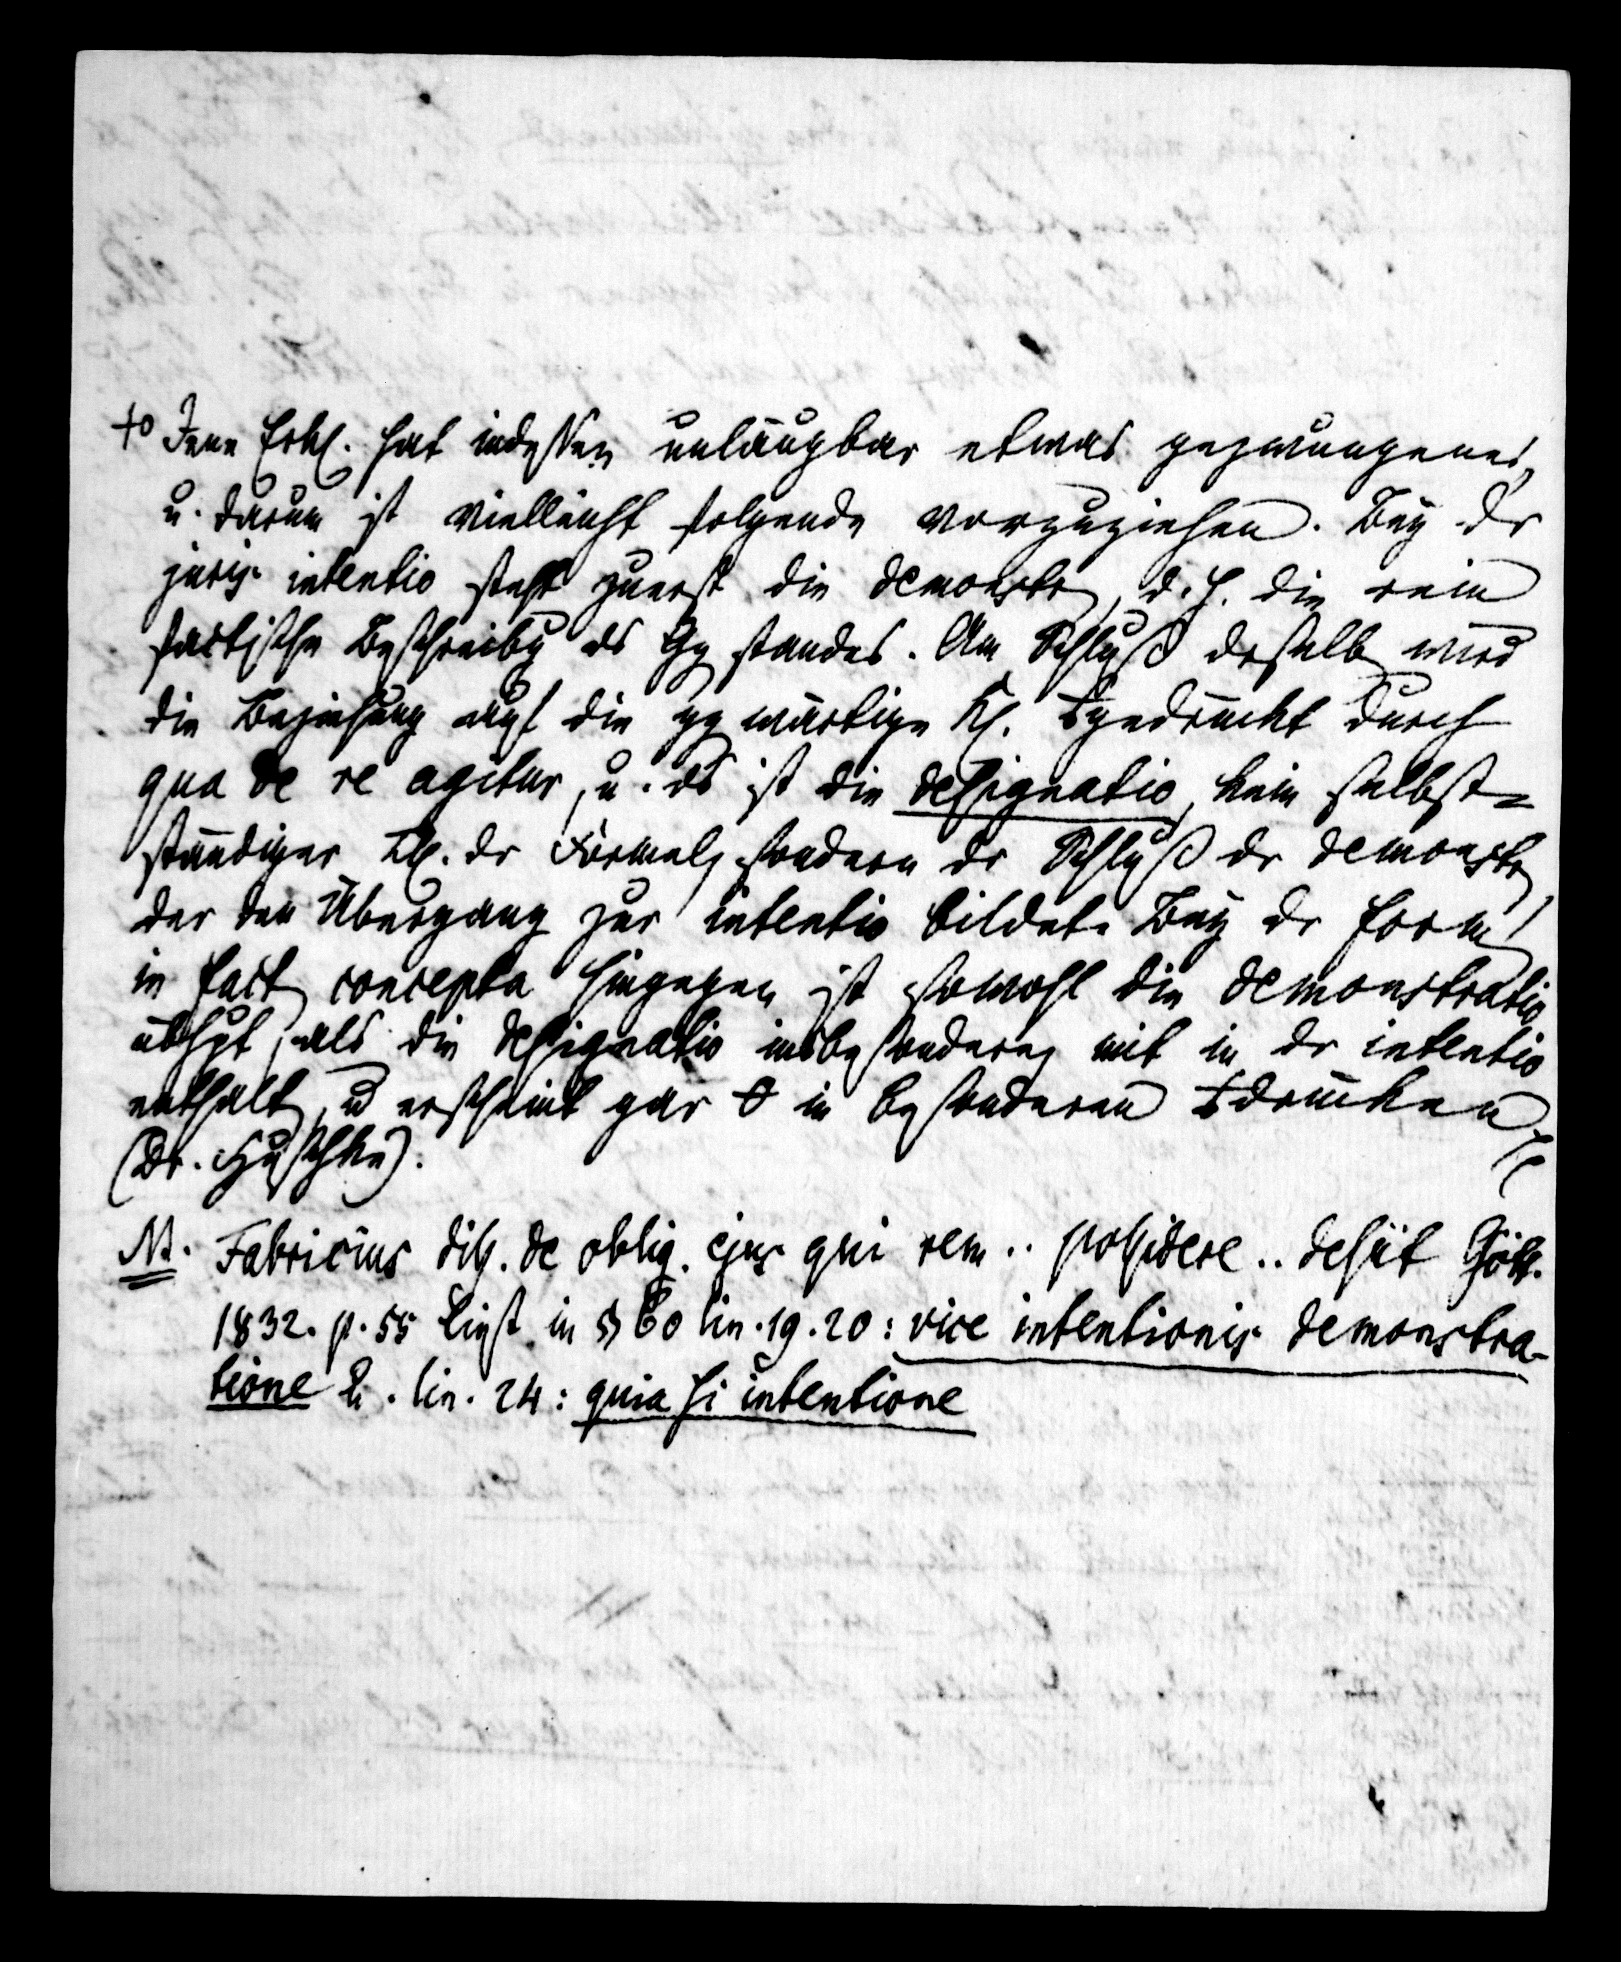 +o Jene Erkl. hat indessen unläugbar etwas gezwungenes,
u. darum ist vielleicht folgende vorzuziehen. Bey dr
juris intentio steht zuerst die demonstr, d. h. die rein
factische Beschreibg ds Ggstandes. Am Schluß drselb wird
die Beziehung auf die ggwärtige Kl. ausgedrückt durch
qua de re agitur, u. ds ist die designatio, kein selbst=
ständiger Th. dr Formel, sondern dr Schluß dr demonstr,
der den Übergang zur intentio bildet. Bey dr form
in fact concepta hingegen ist sowohl die demonstratio
übhpt, als die designatio insbesondere, mit in dr intentio
enthalt, u erscheint gar in besonderen
(Dr. Huschke).
NB. Fabricius diss. de oblig. ejus qui rem .. possidere .. desiit Gött.
1832. p. 55 liest in § 60 lin. 19. 20: vice intentionis demonstra-
tione & . lin. 24: quia si intentione